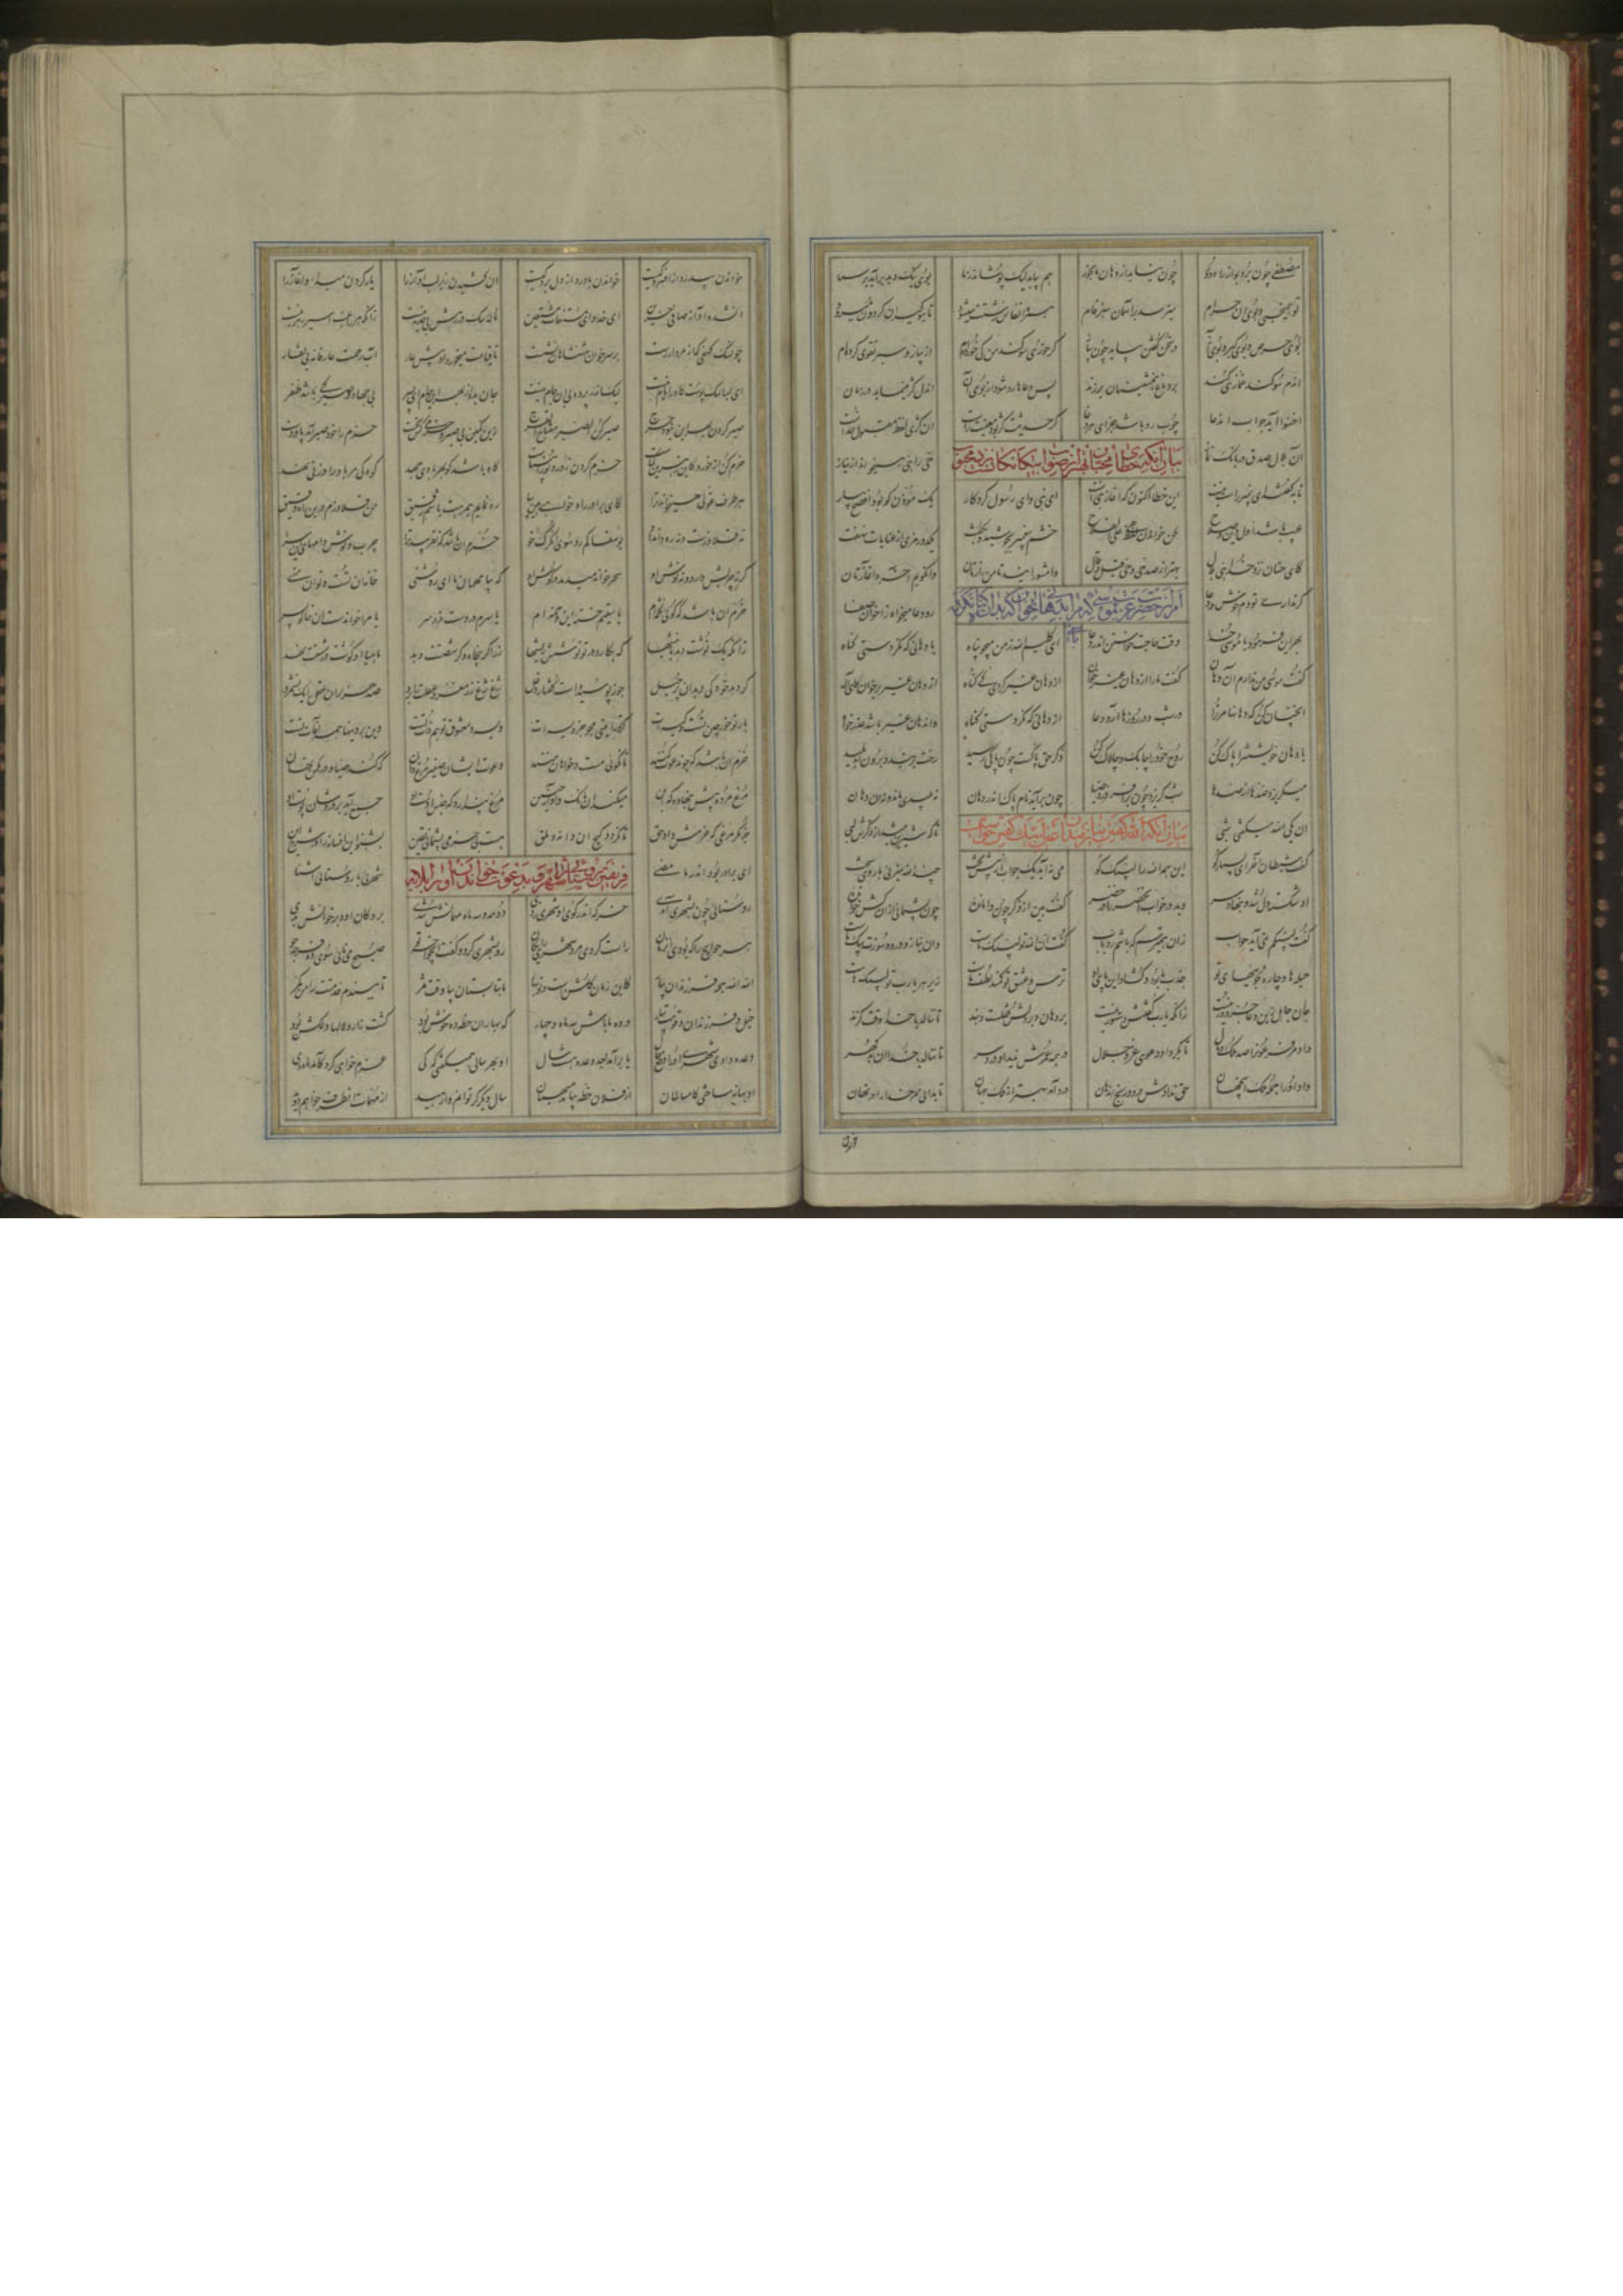 مصطفی چون برد بو از راه دور چون نیابد از دهان ما بخور هم بیابد لیک پوشاند ز ما بوی نیک و بد برآید بر سما
تو همیخسپی و بوی آن حرام میزند بر آسمان سبز فام همره انفاس زشتت میشود تا ببوگیران گردون میرود
بوی حرص و بوی کبر و بوی آز در سخن گفتن بیاید چون پیاز گر خوری سوگند من کی خورده‌ام از پیاز و سیر تقوی کرده‌ام
آن دم سوگند غمازی کند بر دماغ همنشینان بر زند پس دعاها رد شود از بوی آن آن دل کژ مینماید در زبان
اخسؤا آید جواب آن دعا چوب رد باشد جزای هر دغا گر حدیثت کژ بود معنیت راست آن کژی لفظ مقبول خداست
بیان آنکه خطای محبان بهتر از صواب بیگانگان بر محبوب
آن بلال صدق در بانگ نماز حی را هی همیخواند از نیاز
تا بگفتند ای پیمبر راست نیست این خطا اکنون که آغاز بناست ای نبی و ای رسول کردگار یک مؤذن کو بود افصح بیار
عیب باشد اول دین و صلاح لحن خواندن لفظ حی علی الفلاح خشم پیغمبر بجوشید و بگفت یکدو رمزی از عنایات نهفت
کای خسان نزد خدا هی بلال بهتر از صد حی و خی و قیل و قال وا مشورانید تا من رازتان وا نگویم آخر و آغازتان
گر نداری تو دم خوش در دعا رو دعا میخواه ز اخوان صفا
امر حضرت عزت بموسی که مرا بدهانی خوان که بدان گناه نکرده
بهر این فرمود با موسی خدا وقت حاجت خواستن اندر دعا ای کلیم الله ز من میجو پناه با دهانی که نکردستی گناه
گفت موسی من ندارم آن دهان گفت ما را از دهان غیر خوان از دهان غیر کی کردی گناه از دهان غیر بر خوان کای اله
آنچنان کن که دهانها مر ترا در شب و در روزها آرد دعا از دهانی که نکردستی گناه و آن دهان غیر باشد عذر خواه
یا دهان خویشتن را پاک کن روح خود را چابک و چالاک کن ذکر حق پاکست چون پاکی رسید رخت بر بندد برون آید پلید
میگریزد ضدها از ضدها شب گریزد چون بر افروزد ضیا چون بر آید نام پاک اندر دهان نه پلیدی ماند و نه آن دهان
بیان آنکه الله گفتن نیازمند عین لبیک گفتن حق است
آن یکی الله میگفتی شبی تا که شیرین میشد از ذکرش لبی
گفت شیطان آخر ای بسیار گو این همه الله را لبیک کو می نیاید یک جواب از پیش تخت چند الله میزنی با روی سخت
او شکسته دل شد و بنهاد سر دید در خواب او خضر را در خضر گفت هین از ذکر چون وا مانده چون پشیمانی از آن کش خوانده
گفت لبیکم نمی آید جواب زان همیترسم که باشم رد باب گفت آن الله تو لبیک ماست وان نیاز و درد و سوزت پیک ماست
حیله‌ها و چاره جوییهای تو جذب ما بود و گشاد این پای تو ترس و عشق تو کمند لطف ماست زیر هر یا رب تو لبیکهاست
جان جاهل زین دعا جز دور نیست زانکه یا رب گفتنش دستور نیست بر دهان و بر دلش قفلست و بند تا ننالد با خدا وقت گزند
داد مر فرعون را صد ملک و مال تا بکرد او دعوی عز و جلال در همه عمرش ندید او درد سر تا ننالد با خدا آن بد گهر
داد او را جمله ملک این جهان حق ندادش درد و رنج و اندهان درد آمد بهتر از ملک جهان تا بخوانی مر خدا را در نهان
خواندن بی درد از افسردگیست خواندن با درد از دل بردگیست آن کشیدن زیر لب آواز را یاد کردن مبدا و آغاز را
آن شده آواز صافی و حزین ای خدا و ای مستغاث و ای معین ناله سگ در رهش بی جذبه نیست زانکه هر راغب اسیر رهزنیست
چون سگ کهفی که از مردار رست بر سر خوان شهنشاهان نشست تا قیامت میخورد او پیش غار آب رحمت عارفانه بی تغار
ای بسا سگ پوست کو را نام نیست لیک اندر پرده بی آن جام نیست جان بده از بهر این جام ای پسر بی جهاد و صبر کی باشد ظفر
صبر کردن بهر این نبود حرج صبر کن الصبر مفتاح الفرج زین کمین بی صبر و حزمی کس نجست حزم را خود صبر آمد پا و دست
حزم کن از خورد کاین زهرین گیاست حزم کردن زور و نور انبیاست کاه باشد کو بهر بادی جهد کوه کی مر باد را وزنی نهد
هر طرف غولی همیخواند ترا کای برادر راه خواهی هین بیا ره نمایم همرهت باشم رفیق من قلاوزم درین راه دقیق
نه قلاوزست و نه ره داند او یوسفا کم رو سوی آن گرگ خو حزم آن باشد که نفریبد ترا چرب و نوش و دامهای این سرا
که نه چربش دارد و نه نوش او سحر خواند میدمد در گوش او که بیا مهمان ما ای روشنی خانه آن تست و تو آن منی
حزم آن باشد که گویی تخمه‌ام یا سقیمم خسته این دخمه‌ام یا سرم دردست درد سر ببر یا مرا خواندست آن خالو پسر
زانکه یک نوشت دهد با نیشها که بکارد در تو نوشش ریشها زر اگر پنجاه و گر شصتت دهد ماهیا او گوشت در شستت دهد
گر دهد خود کی دهد آن پر حیل جوز پوسیدست گفتار دغل ژغژغ آن مغز و عقلت را برد صد هزاران عقل را یک نشمرد
یار تو خورجین تست و کیسه‌ات گر تو رامینی مجو جز ویسه‌ات ویسه و معشوق تو هم ذات تست وین برونیها همه آفات تست
حزم آن باشد که چون دعوت کنند تو نگویی مست و خواهان منند دعوت ایشان صفیر مرغ دان که کند صیاد در مکمن نهان
مرغ مرده پیش بنهاده که این میکند این بانگ و آواز حنین مرغ پندارد که جنس اوست او جمع آید بر دردشان پوست او
جز مگر مرغی که حزمش داد حق تا نگردد گیج آن دانه و ملق هست بی حزمی پشیمانی یقین بشنو این افسانه را در شرح این
فریفتن روستایی شهری را و بدعوت خواندن او را بلابه
ای برادر بود اندر ما مضی شهریی با روستایی آشنا
روستایی چون بشهر آمدی خرگه اندر کوی آن شهری زدی دو مه و سه ماه مهمانش بدی بر دکان او و بر خوانش بدی
هر حوایج را که بودی آن زمان راست کردی مرد شهری رایگان رو بشهری کرد و گفت ای خواجه تو هیچ می نایی سوی ده فرجه جو
الله الله جمله فرزندان بیار کاین زمان گلشنست و نوبهار یا بتابستان بیا وقت ثمر تا ببندم خدمتت را من کمر
خیل و فرزندان و قومت بیار در ده ما باش سه ماه و چهار که بهاران خطه ده خوش بود کشت زار و لاله دلکش بود
وعده دادی شهری او را دفع حال تا بر آمد بعد وعده هشت سال او بهر سالی همیگفتی که کی عزم خواهی کرد کآمد ماه دی
او بهانه ساختی کامسالمان از فلان خطه بیامد میهمان سال دیگر گر توانم وا رهید از مهمات آن طرف خواهم دوید